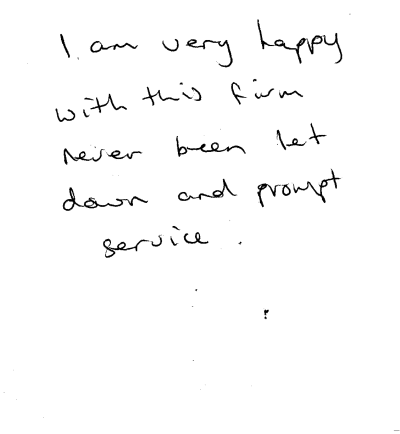 I am very happy
with this firm
never been let
down and prompt
service.